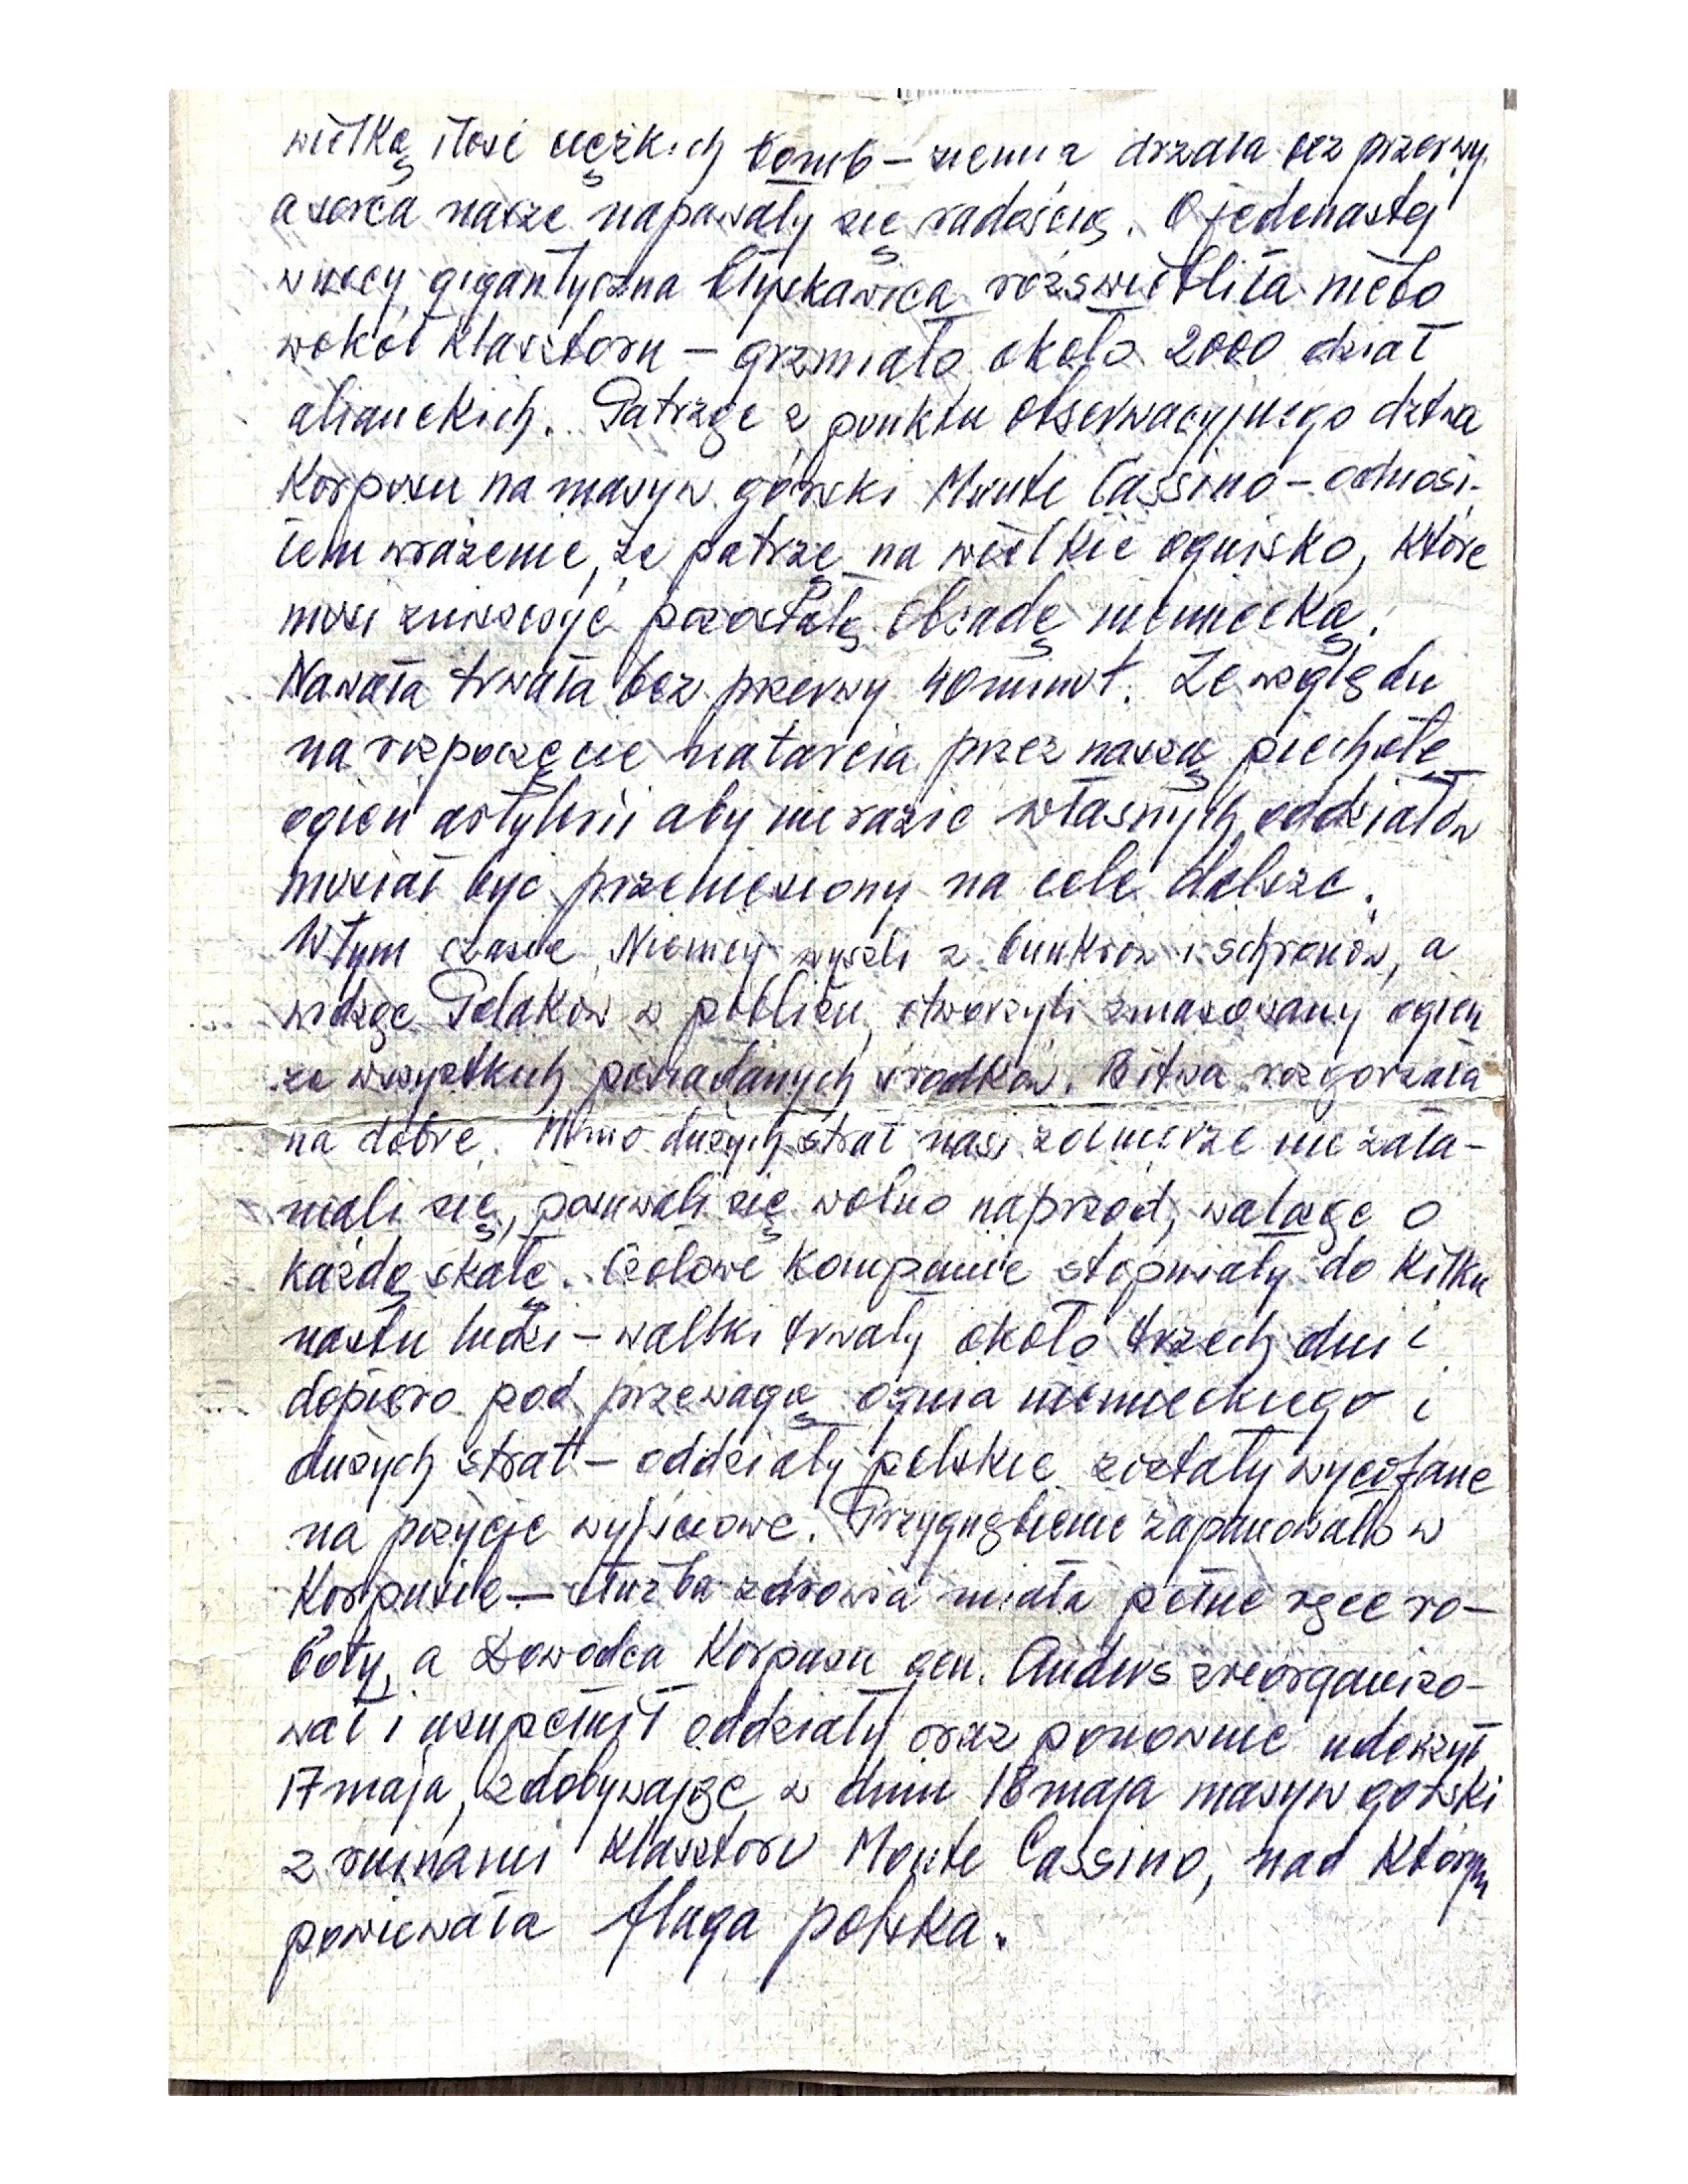 wielką ilość ciężkich bomb – ziemia drżała bez przerwy
a serca nasze napawały się radością. O jedenastej
w nocy gigantyczna błyskawica rozświetliła niebo
wokół klasztoru – grzmiało około 2000 dział
alianckich. Patrząc z punktu obserwacyjnego dztwa
Korpusu na masyw górski Monte Cassino – odnosi-
łem wrażenie, że patrzę na wielkie ognisko, które
musi zniszczyć pozostałą obsadę niemiecką.
Nawała trwała bez przerwy 40 minut. Ze względu
na rozpoczęcie natarcia przez naszą piechotę
ogień artylerii aby nie razić własnych oddziałów
musiał być przeniesiony na cele dalsze.
W tym czasie Niemcy wyszli z bunkrów i schronów, a
widząc Polaków w pobliżu, otworzyli zmasowany ogień
ze wszystkich posiadanych środków. Bitwa rozgorzała
na dobre. Mimo dużych strat nasi żołnierze nie zała-
mali się, posuwali się wolno naprzód, walcząc o
każdą skałę. Czołowe kompanie stopniały do kilku
nastu ludzi – walki trwały około trzech dni i
dopiero pod przewagą ognia niemieckiego i
dużych strat – oddziały polskie zostały wycofane
na pozycje wyjściowe. Przygnębienie zapanowało w
Korpusie – służba zdrowia miała pełne ręce ro-
boty, a Dowódca Korpusu gen. Anders zreorganizo-
wał i uzupełnił oddziały oraz ponownie uderzył
17 maja, zdobywając w dniu 18 maja masyw górski
z ruinami klasztoru Monte Cassino, nad którym
powiewała flaga polska.